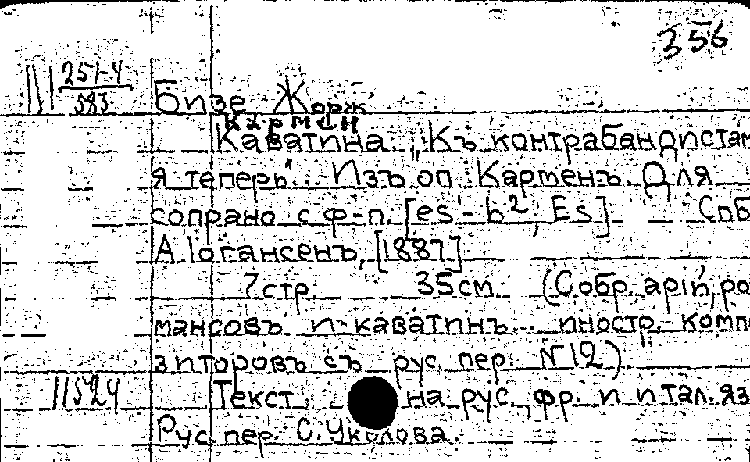 356
III 251-4/583
Бизе Жорж
Кармен
Каватина "Къ контрабандистам
я теперь". Изъ оп. Карменъ. Для
сопрано с ф-п. [es - b², Es]. Спб
А. Іогансенъ, [1887]
7 стр. 35 см. (Собр. арій, ро
мансовъ и каватинъ иностр. компо
зиторовъ съ рус. пер. N 12)
11524 Текст на рус., фр. и итал. яз
Рус. пер. С. Уколова.